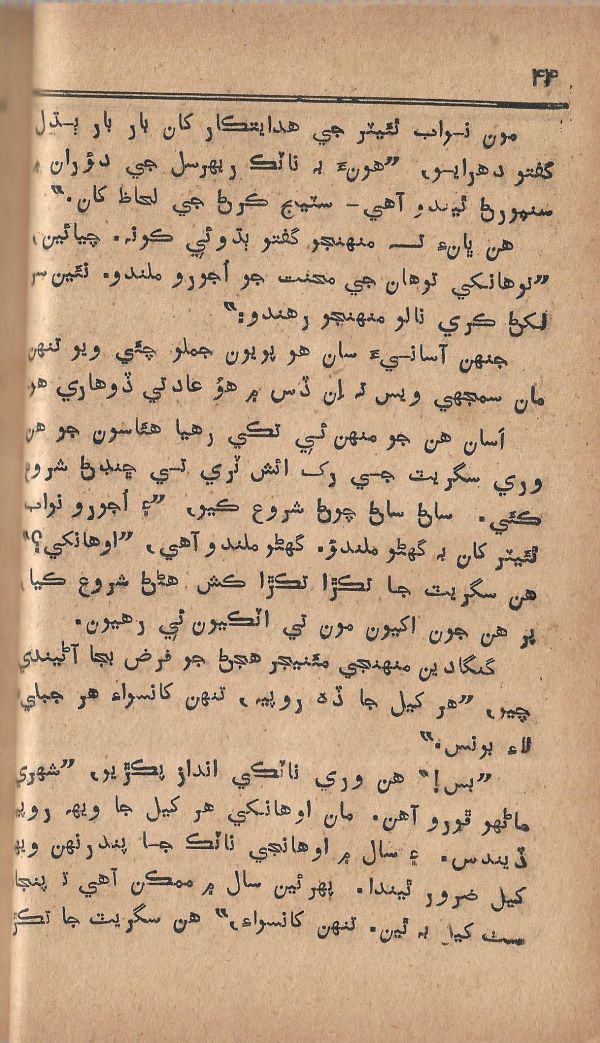 ۴۴
مون نواب ٿئيٽر جي هدايتڪار کان بار بار ٻڌل
گفتو دهرايو، ”هونءَ بہ ناٽڪ ريهرسل جي دؤران ۾
سنمورڻ ٿيندو آهي- سٽيج ڪرڻ جي لحاظ کان.“
هن ڀانءِ تہ منهنجو گفتو ٻڌو ئي ڪونہ. چيائين،
”توهانکي توهان جي محنت جو اُجورو ملندو. ٿئين سر
لکڻ ڪري نالو منهنجو رهندو:“
جنهن آسانيءَ سان هو پويون جملو چئي ويو تنهن
مان سمجهي ويس تہ اِن ڏس ۾ هؤ عادتي ڏوهاري هو
اَسان هن جو منهن ئي تڪي رهيا هئاسون جو هن
وري سگريٽ جي رک ائش ٽري تي ڇنڊڻ شروع
ڪئي. ساڻ ساڻ چوڻ شروع ڪيو، ”۽ اُجورو نواب
ٿئيٽر کان بہ گهڻو ملندؤ. گهڻو ملندو آهي، ”اوهانکي؟“
هن سگريٽ جا تڪڙا تڪڙا ڪش هڻڻ شروع ڪيا،
پر هن جون اکيون مون تي اٽڪيون ئي رهيون.
گنگادين منهنجي مئنيجر هجڻ جو فرض بجا آڻيندي
چيو، ”هر کيل جا ڏه روپيہ، تنهن کانسواءِ هر جبلي
لاءِ بونس.“
”بس!“ هن وري ناٽڪي انداز پڪڙيو، ”شهري
ماڻهو ٿورو آهن. مان اوهانکي هر کيل جا ويهہ روپيہ
ڏيندس. ۽ سال ۾ اوهانجي ناٽڪ جا پندرنهن ويهہ
کيل ضرور ٿيندا. پهرئين سال ۾ ممڪن آهي تہ پنجاهہ
سٺ کيل بہ ٿين. تنهن کانسواءِ،“ هن سگريٽ جا تڪڙا